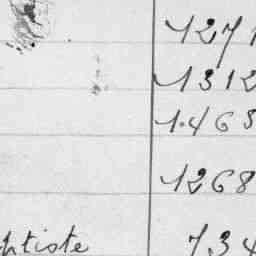 1271
1312
1.463
1268
ptiste 7.34